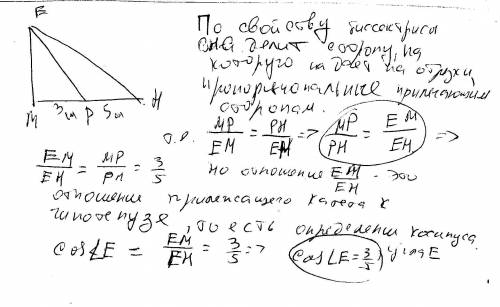 E
M 3м P 5м H
По свойству биссектрисы
она делит сторону, на
которую падает на отрезки,
пропорциональные прилежащим
сторонам.
т.е. MP/EM = PH/EH => MP/PH = EM/EH =>
EM/EH = MP/PH = 3/5
но отношение EM/EH - это
отношение прилежащего катета к
гипотенузе, то есть определение косинуса
угла E
cos∠E = EM/EH = 3/5 => cos∠E = 3/5